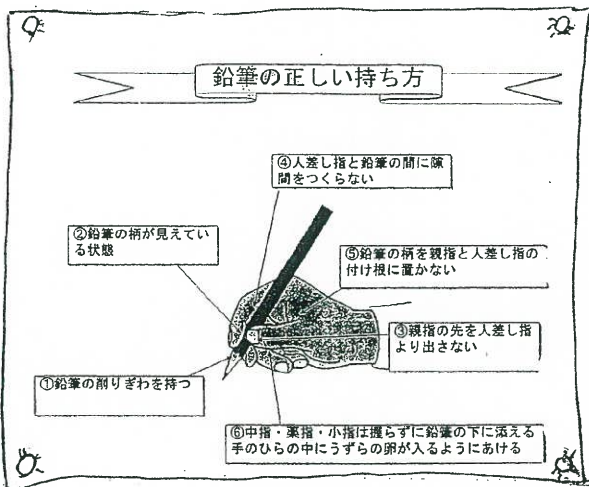 鉛筆の正しい持ち方
④人差し指と鉛筆の間に隙
間をつくらない
②鉛筆の柄が見えてい
る状態
⑤鉛筆の柄を親指と人差し指の
付け根に置かない
③親指の先を人差し指
より出さない
①鉛筆の削りぎわを持つ
⑥中指・薬指・小指は握らずに鉛筆の下に添える
手のひらの中にうずらの卵が入るようにあける